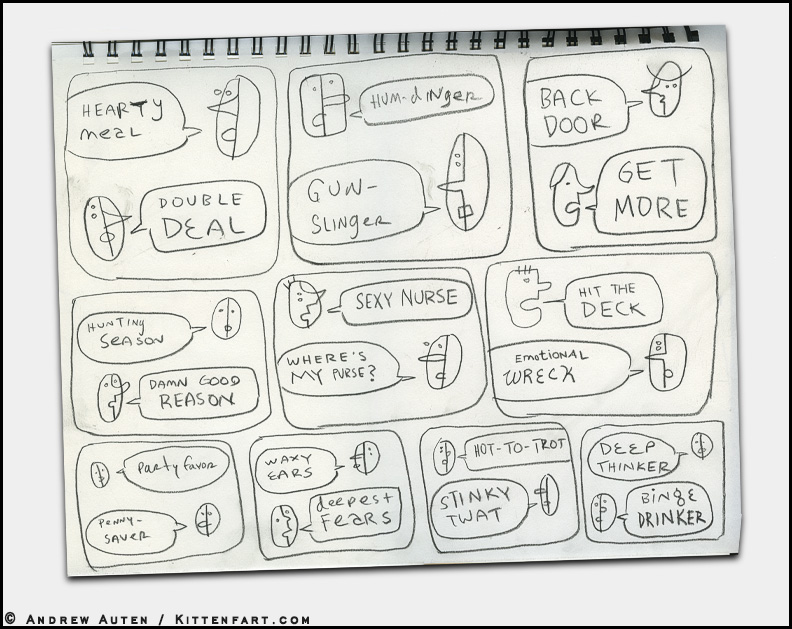 HEARTY
MEAL
DOUBLE
DEAL
HUM-DINGER
GUN-
SLINGER
BACK
DOOR
GET
MORE
HUNTING
SEASON
DAMN GOOD
REASON
SEXY NURSE
WHERE'S
MY PURSE?
HIT THE
DECK
EMOTIONAL
WRECK
Party favor
PENNY-
SAVER
WAXY
EARS
deepest
FEARS
HOT-TO-TROT
STINKY
TWAT
DEEP
THINKER
BINGE
DRINKER
© ANDREW AUTEN / KITTENFART.COM